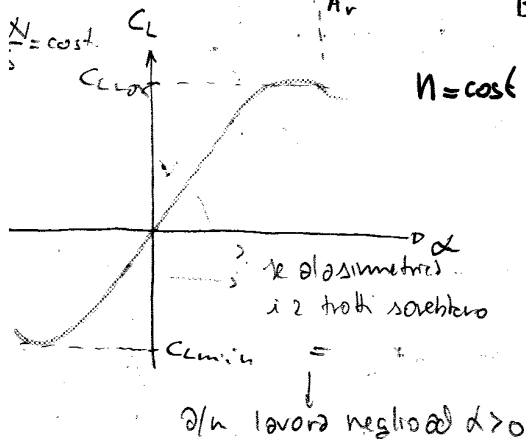 Ar
= cost.
CL
CLmax
n = cost
α
se ala simmetrica
i 2 tratti sarebbero
=
CLmin
a/m lavora meglio ad α>0